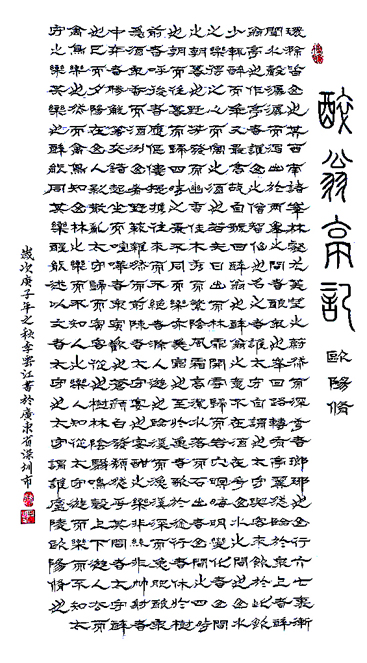 醉翁亭記 歐陽修
環滁皆山也其西南諸峰林壑尤美望之蔚然而深秀者琅琊也山行六七里漸
聞水聲潺潺而瀉出於兩峰之間者釀泉也峰回路轉有亭翼然臨於泉上者醉
翁亭也作亭者誰山之僧智仙也名之者誰太守自謂也太守與客來飲於此飲
少輒醉而年又最高故自號曰醉翁也醉翁之意不在酒在乎山水之間也山水
之樂得之心而寓之酒也若夫日出而林霏開雲歸而巖穴暝晦明變化者山間
之朝暮也野芳發而幽香佳木秀而繁陰風霜高潔水落而石出者山間之四時也
朝而往暮而歸四時之景不同而樂亦無窮也至於負者歌於途行者休於樹
前者呼後者應傴僂提攜往來而不絕者滁人遊也臨溪而漁溪深而魚肥釀泉
為酒泉香而酒洌山肴野蔌雜然而前陳者太守宴也宴酣之樂非絲非竹射者
中弈者勝觥籌交錯起坐而喧嘩者眾賓歡也蒼顏白髮頹然乎其間者太守醉
也已而夕陽在山人影散亂太守歸而賓客從也樹林陰翳鳴聲上下遊人去而
禽鳥樂也然而禽鳥知山林之樂而不知人之樂人知從太守遊而樂而不知太
守之樂其樂也醉能同其樂醒能述以文者太守也太守謂誰廬陵歐陽修也
歲次庚子年之秋李雲江書於廣東省深圳市